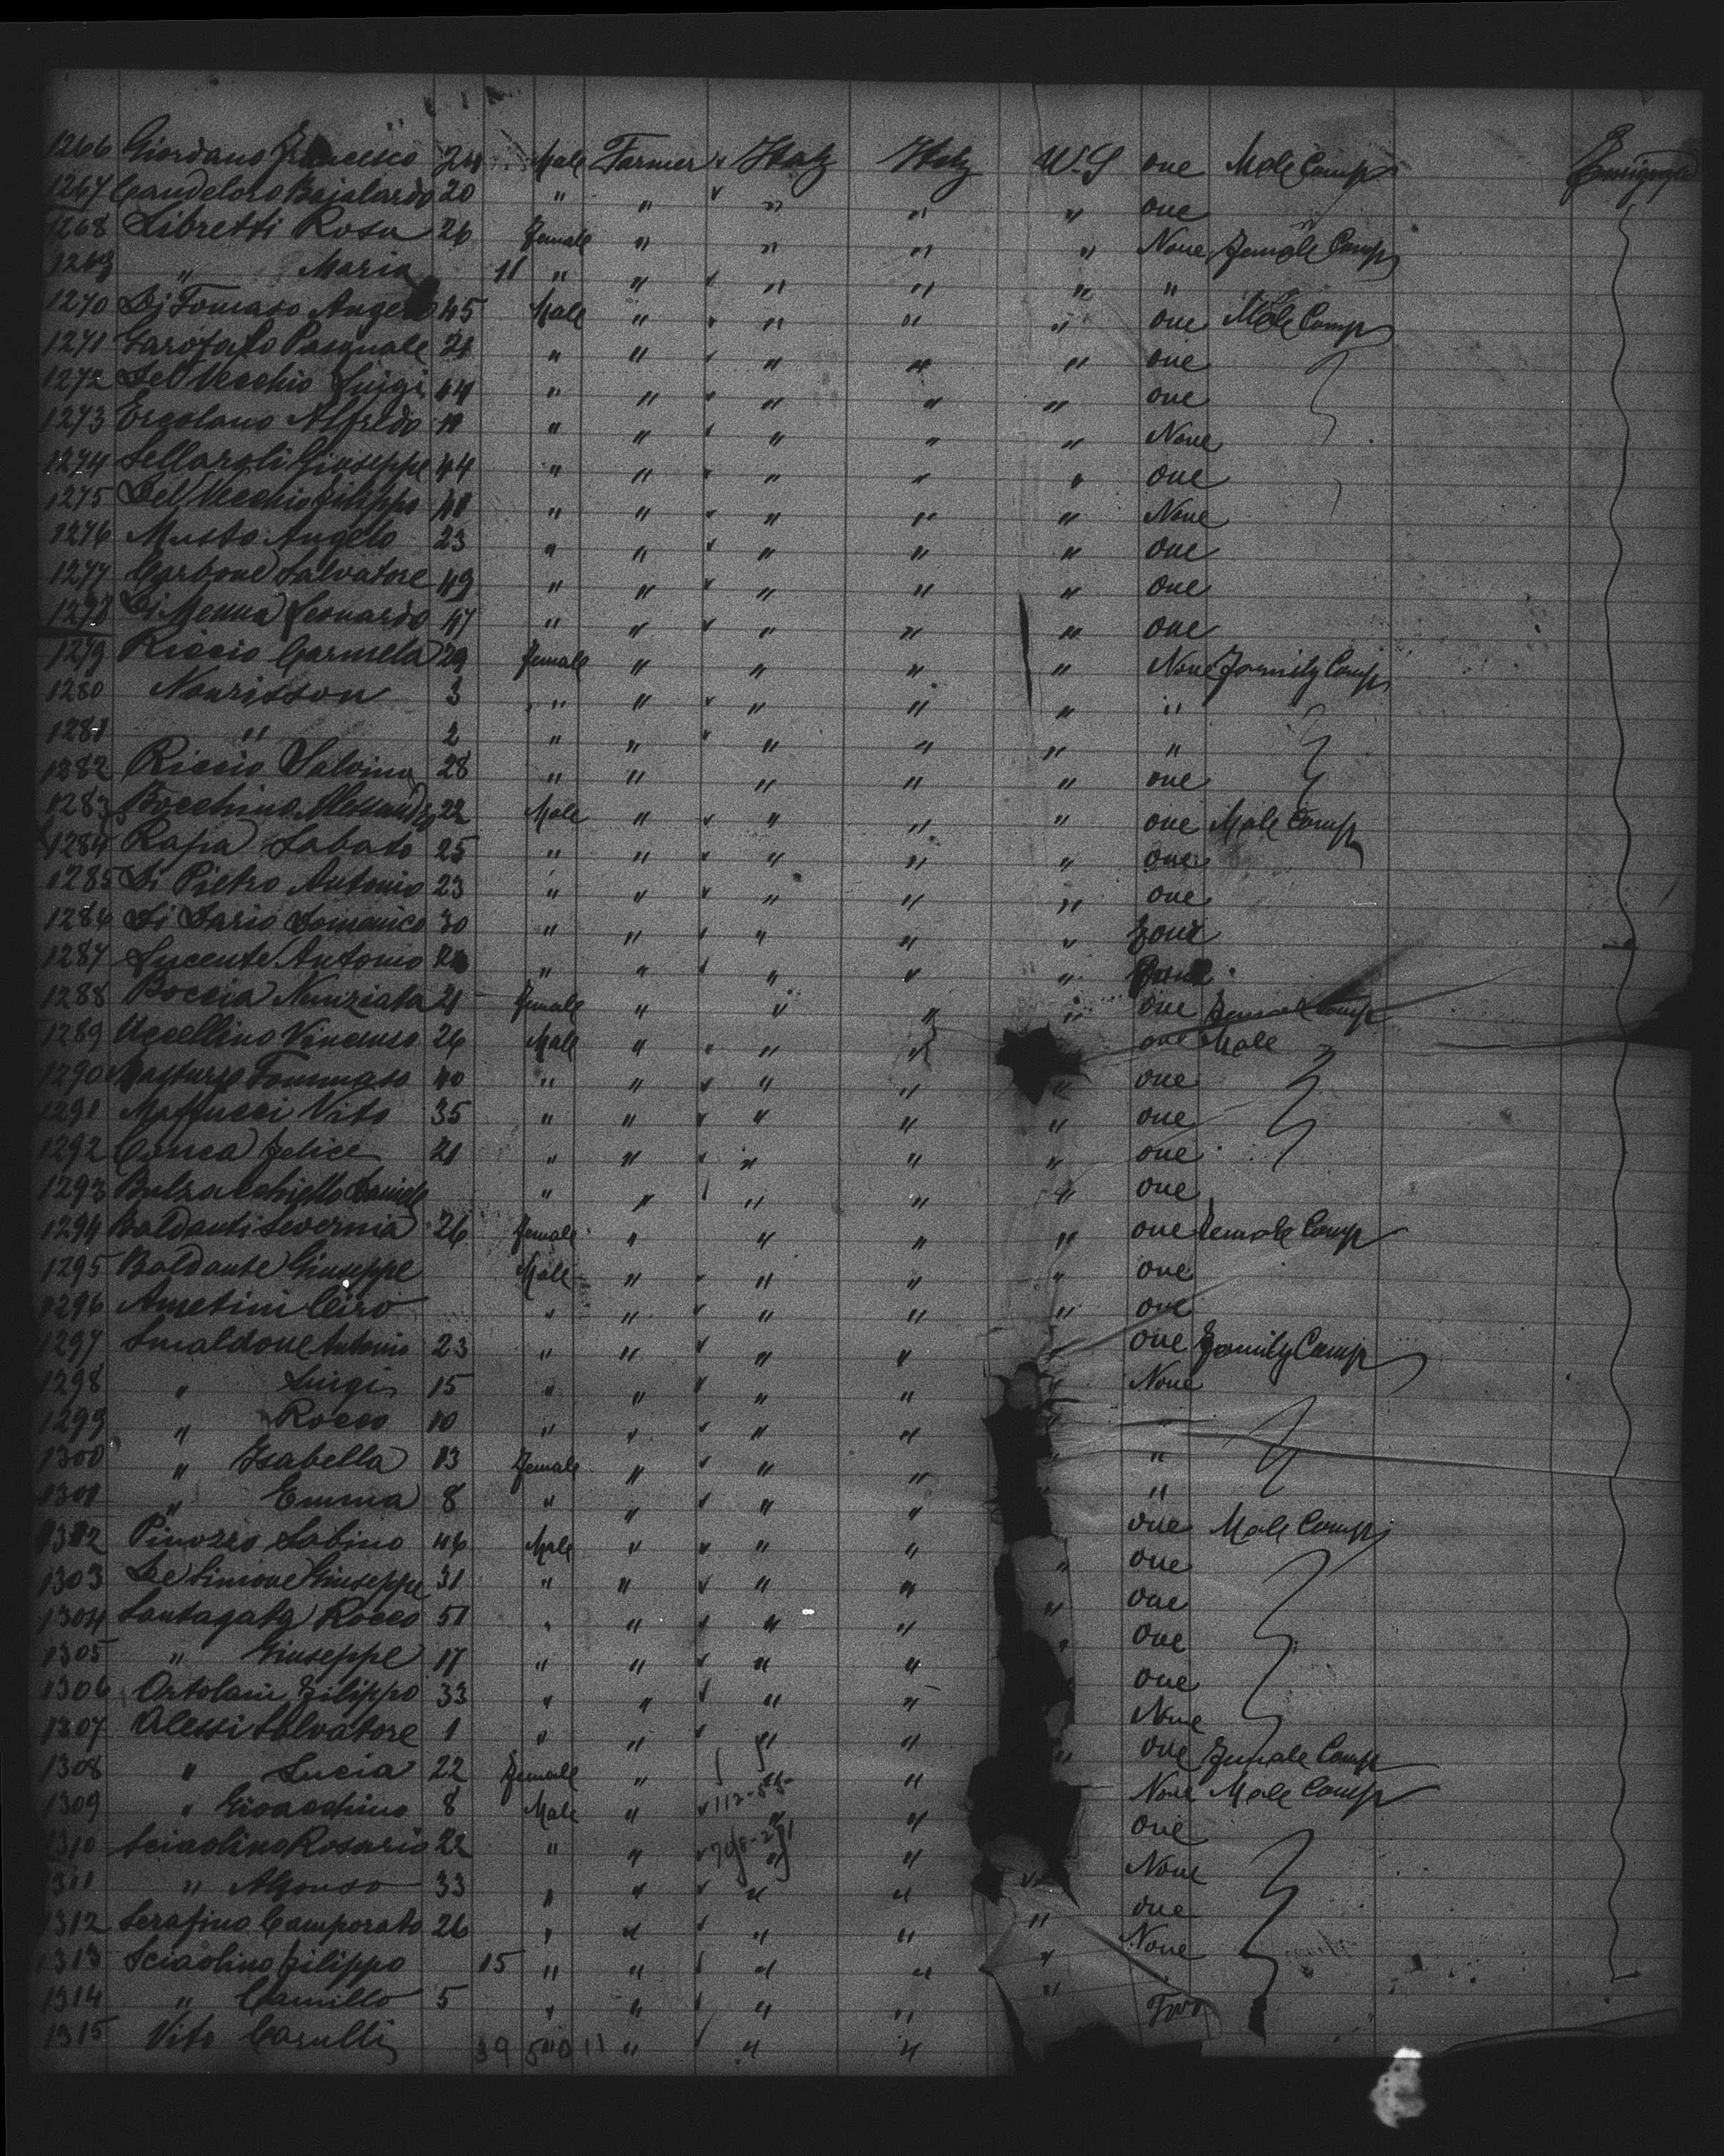 1266 Giordano Francesco Male Farmer v Italy Italy W.S one Male Comp Emigrated
1267 Candeloro Bajalardo 20 " " v " " " one
1268 Libretti Rosa 26 Female " " " " None Female Comp
1269 " Maria 11 " " v " " " "
1270 Di Tomaso Angelo 45 Male " v " " " one Male Comp
1271 Garofalo Pasquale 21 " " v " " " one
1272 Del Vecchio Luigi 44 " " v " " " one
1273 Ercolano Alfredo " " v " " " None
1274 Sellaroli Giuseppe 44 " " v " " " one
1275 Del Vecchio Filippo " " v " " " None
1276 Musto Angelo 23 " " v " " " one
1277 Carbone Salvatore 49 " " v " " " one
1278 Di Menna Leonardo 47 " " v " " " one
1279 Riccio Carmela 29 Female " " " " None Family Comp
1280 Nourisson 3 " " v " " " "
1281 " 2 " " v " " " "
1282 Riccio Salvina 28 " " " " " one
1283 Bocchino Alessandro 22 Male " v " " " one Male Comp
1284 Rapa Sabato 25 " " v " " " one
1285 Di Pietro Antonio 23 " " v " " " one
1286 Di Iario Domenico 30 " " v " " " four
1287 Lucente Antonio " " v " " "
1288 Boccia Nunziata 21 Female " " " " one Female Comp
1289 Uccellino Vincenso 26 Male " v " " one Male
1290 Masturzo Tommaso 40 " " v " " " one
1291 Maffucci Vito 35 " " v " " " one
1292 Conca Felice 21 " " v " " " one
1293 Balzacchiello Daniele " " v " " " one
1294 Baldanti Severnia 26 Female " " " " one Female Comp
1295 Baldante Giuseppe Male " v " " " one
1296 Ametini Ciro " " v " " " one
1297 Smaldone Antonio 23 " " v " " one Family Comp
1298 " Luigi 15 " " v " " " None
1299 " Rocco 10 " " v " " " "
1300 " Isabella 13 Female " v " " " "
1301 " Emma 8 " " v " " "
1302 Pinozzo Sabino 46 Male " v " " one Male Comp
1303 De Simone Giuseppe 31 " " v " " " one
1304 Santagata Rocco 51 " " v " " " one
1305 " Giuseppe 17 " " v " " " one
1306 Ortolani Filippo 33 " " v " " one
1307 Alessi Salvatore 1 " " v " " None
1308 " Lucia 22 Female " " " one Female Comp
1309 " Gioacchino 8 Male " v " " None Male Comp
1310 Sciaolino Rosario 22 " " v " " one
1311 " Alfonso 33 " " v " " " None
1312 Serafino Camporato 26 " " v " " " one
1313 Sciaolino Filippo 15 " " v " " " None
1314 " Camillo 5 " " v " " "
1315 Vito Carulli " v " " Two